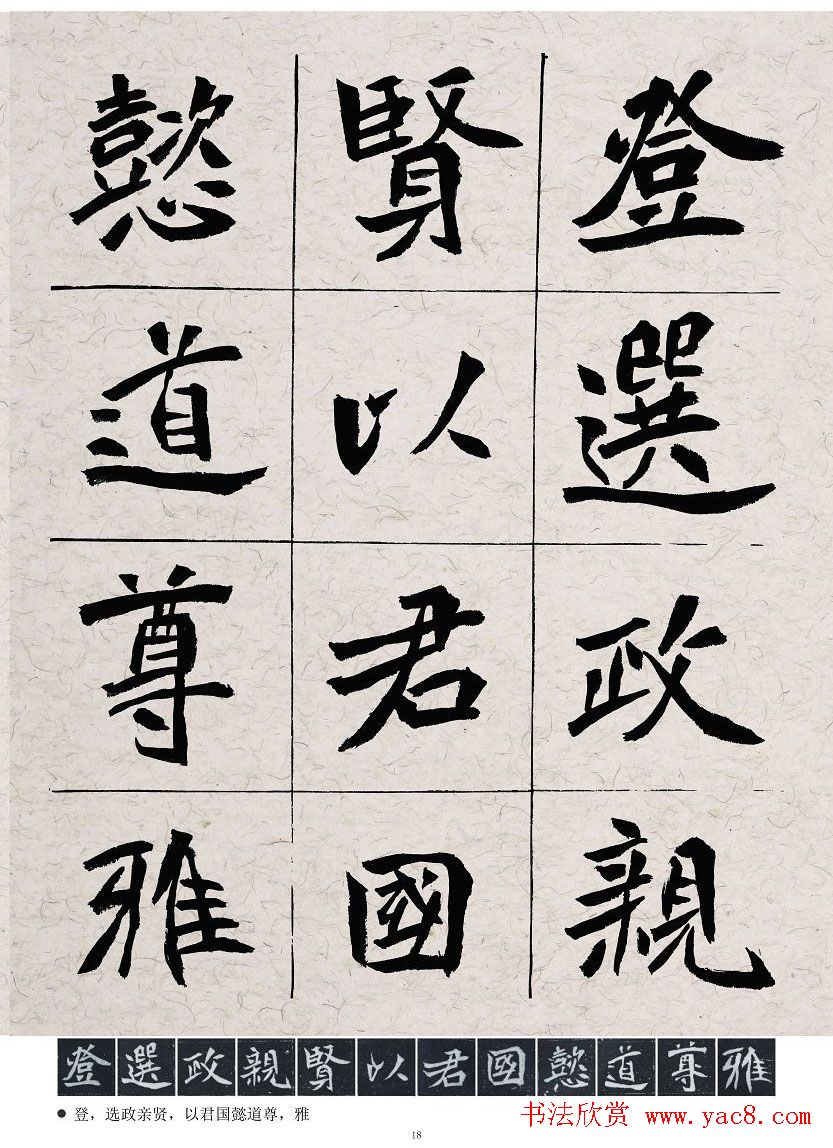 登選政親
賢以君國
懿道尊雅
登選政親賢以君國懿道尊雅
● 登，选政亲贤，以君国懿道尊，雅
书法欣赏 www.yac8.com
18